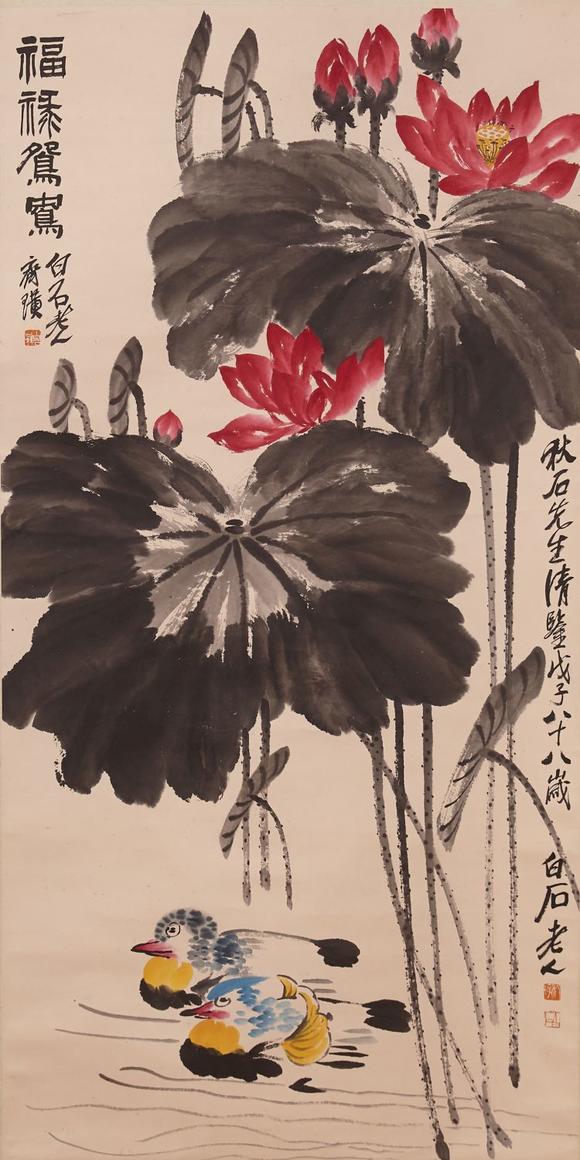 福祿鴛鴦
白石老人
齊璜
秋石先生清鑒戊子八十八歲
白石老人